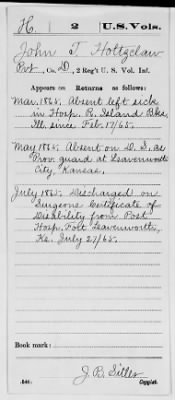 H. 2 U.S. Vols.
John T. Holtzclaw
Pvt, Co. D, 2 Reg't U. S. Vol. Inf.
Appears on Returns as follows:
Mar. 1865. Absent left sick
in Hosp. R. Island Bks
Ill. since Feb. 17/65.
May 1865. Absent on D. S. as
Prov. guard at Leavenworth
City, Kansas.
July 1865. Discharged on
Surgeons Certificate of
Disability from Post
Hosp. Fort Leavenworth,
Ks. July 27/65.
Book mark:
J. B. Siller
(546) Copyist.